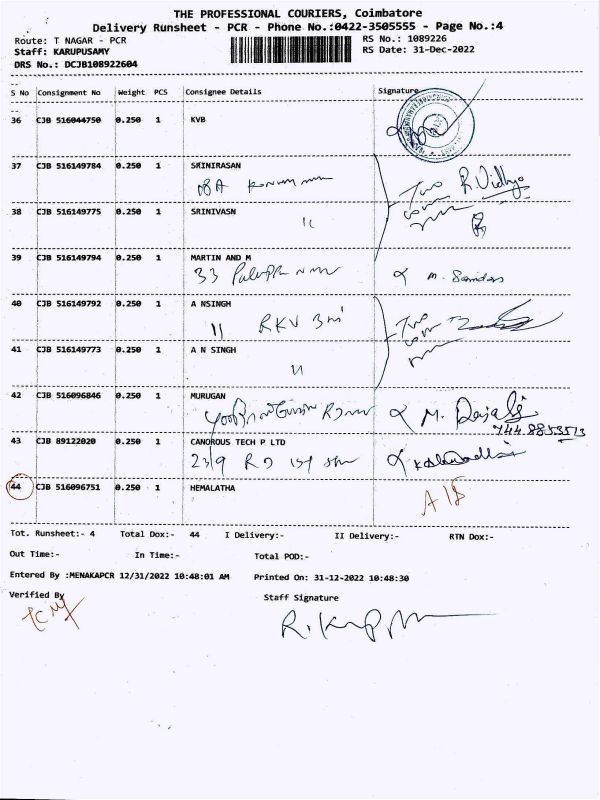 THE PROFESSIONAL COURIERS, Coimbatore
Delivery Runsheet - PCR - Phone No.:0422-3505555 - Page No.:4
Route: T NAGAR - PCR RS No.: 1089226
Staff: KARUPUSAMY RS Date: 31-Dec-2022
DRS No.: DCJB108922604
S No Consignment No Weight PCS Consignee Details Signature
36 CJB 516044750 0.250 1 KVB
37 CJB 516149784 0.250 1 SRINIRASAN
Two R. Vidhya
38 CJB 516149775 0.250 1 SRINIVASN
11
39 CJB 516149794 0.250 1 MARTIN AND M
33
40 CJB 516149792 0.250 1 A NSINGH
11 RKV Two
41 CJB 516149773 0.250 1 A N SINGH
11
42 CJB 516096846 0.250 1 MURUGAN
M.
43 CJB 89122020 0.250 1 CANOROUS TECH P LTD
23/9 R D 1st
44 CJB 516096751 0.250 1 HEMALATHA
Tot. Runsheet:- 4 Total Dox:- 44 I Delivery:- II Delivery:- RTN Dox:-
Out Time:- In Time:- Total POD:-
Entered By :MENAKAPCR 12/31/2022 10:48:01 AM Printed On: 31-12-2022 10:48:30
Verified By Staff Signature